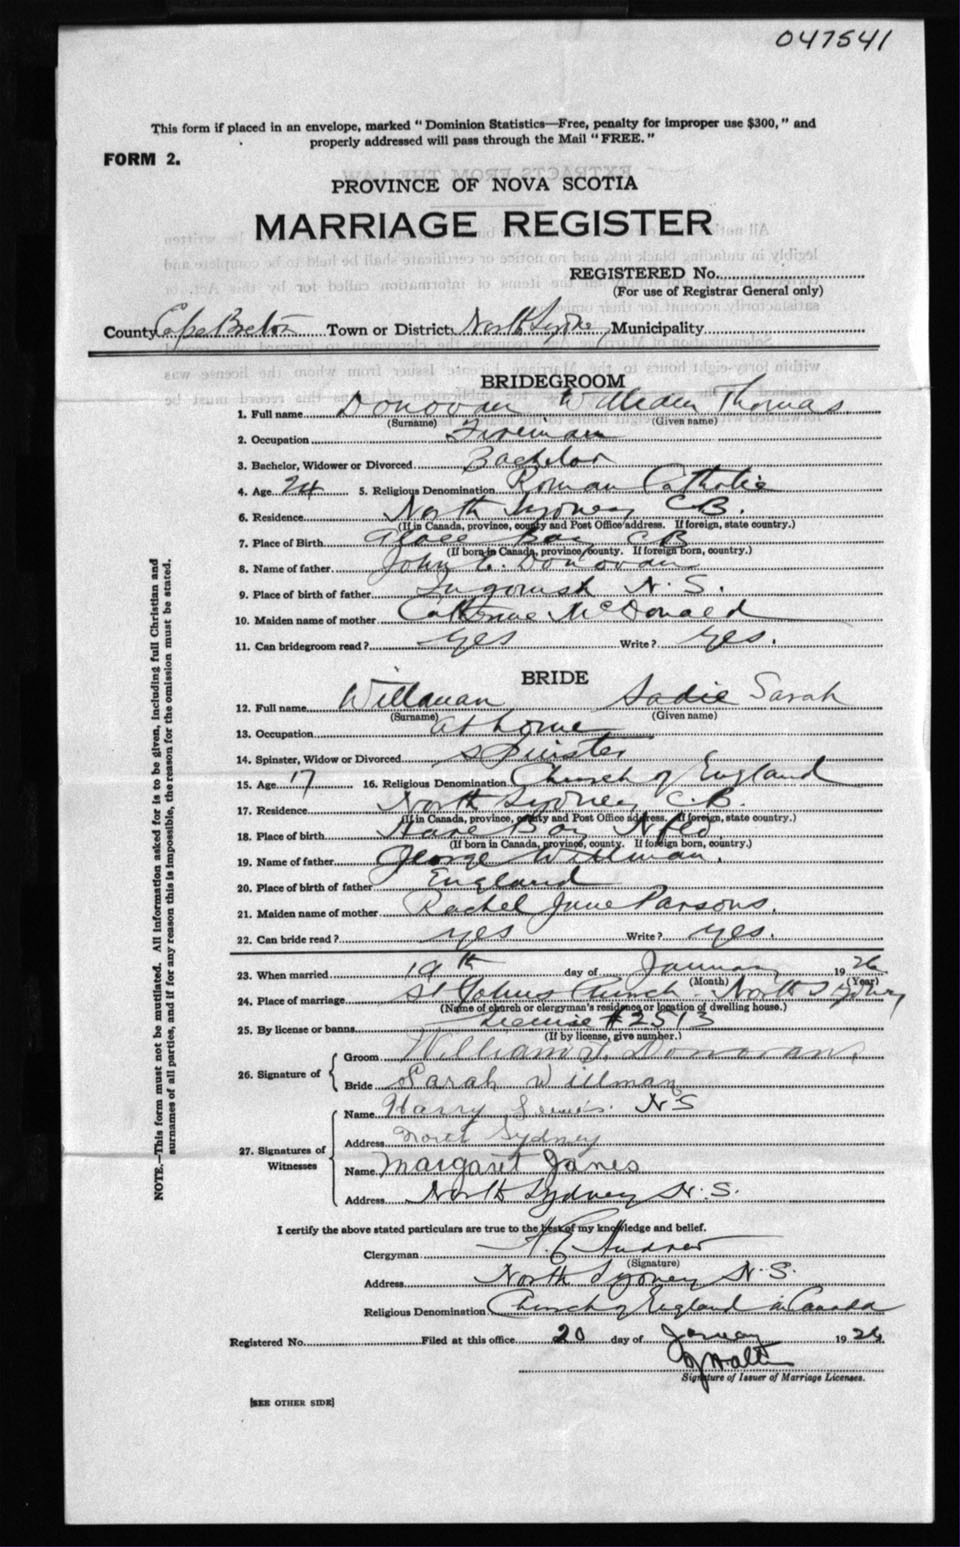 047541
This form if placed in an envelope, marked "Dominion Statistics—Free, penalty for improper use $300," and
properly addressed will pass through the Mail "FREE."
FORM 2.
PROVINCE OF NOVA SCOTIA
MARRIAGE REGISTER
REGISTERED No.
(For use of Registrar General only)
County Cape Breton Town or District North Sydney Municipality
BRIDEGROOM
1. Full name Donovan William Thomas
(Surname) (Given name)
2. Occupation Fireman
3. Bachelor, Widower or Divorced Bachelor
4. Age 24 5. Religious Denomination Roman Catholic
6. Residence North Sydney C.B.
(If in Canada, province, county and Post Office address. If foreign, state country.)
7. Place of Birth Glace Bay C B
(If born in Canada, province, county. If foreign born, country.)
8. Name of father John C. Donovan
9. Place of birth of father Ingonish N. S.
10. Maiden name of mother Catherine McDonald
11. Can bridegroom read? yes Write? yes.
BRIDE
12. Full name Willman Sadie Sarah
(Surname) (Given name)
13. Occupation at home
14. Spinster, Widow or Divorced Spinster
15. Age 17 16. Religious Denomination Church of England
17. Residence North Sydney C.B.
(If in Canada, province, county and Post Office address. If foreign, state country.)
18. Place of birth Hare Bay Nfld.
(If born in Canada, province, county. If foreign born, country.)
19. Name of father George Willman.
20. Place of birth of father England
21. Maiden name of mother Rachel Jane Parsons.
22. Can bride read? yes Write? yes.
23. When married 19th day of January 1926
(Month) (Year)
24. Place of marriage St Johns Church North Sydney
(Name of church or clergyman's residence or location of dwelling house.)
25. By license or banns License # 2513
(If by license, give number.)
26. Signature of Groom William T. Donovan.
Bride Sarah Willman
27. Signatures of Witnesses Name Harry Lewis. N S
Address North Sydney
Name Margaret Janes
Address North Sydney N. S.
I certify the above stated particulars are true to the best of my knowledge and belief.
Clergyman A. E. Andrew
(Signature)
Address North Sydney N. S.
Religious Denomination Church of England in Canada
Registered No. Filed at this office 20 day of January 1926
Signature of Issuer of Marriage Licenses.
[SEE OTHER SIDE]
NOTE.—This form must not be mutilated. All information asked for is to be given, including full Christian and
surnames of all parties, and if for any reason this is impossible, the reason for the omission must be stated.